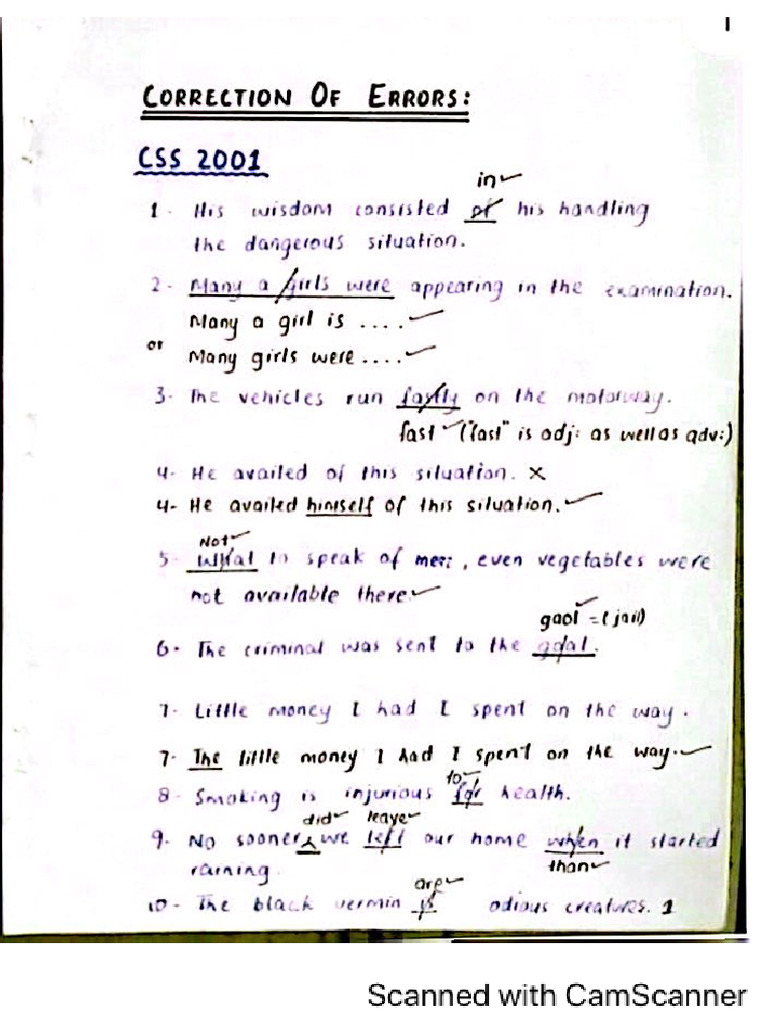 1
CORRECTION OF ERRORS:
CSS 2001
in✓
1- His wisdom consisted of his handling
the dangerous situation.
2- Many a girls were appearing in the examination.
Many a girl is ....✓
or Many girls were ....✓
3- The vehicles run fastly on the motorway.
fast ✓("fast" is adj: as well as adv:)
4- He availed of this situation. ×
4- He availed himself of this situation.✓
Not✓
5- What to speak of men, even vegetables were
not available there.✓
gaol✓ = (jail)
6- The criminal was sent to the goal.
7- Little money I had I spent on the way.
7- The little money I had I spent on the way.✓
to✓
8- Smoking is injurious for health.
did✓ leave✓
9. No sooner ^ we left our home when it started
than✓
raining.
are✓
10- The black vermin is odious creatures. 1
Scanned with CamScanner